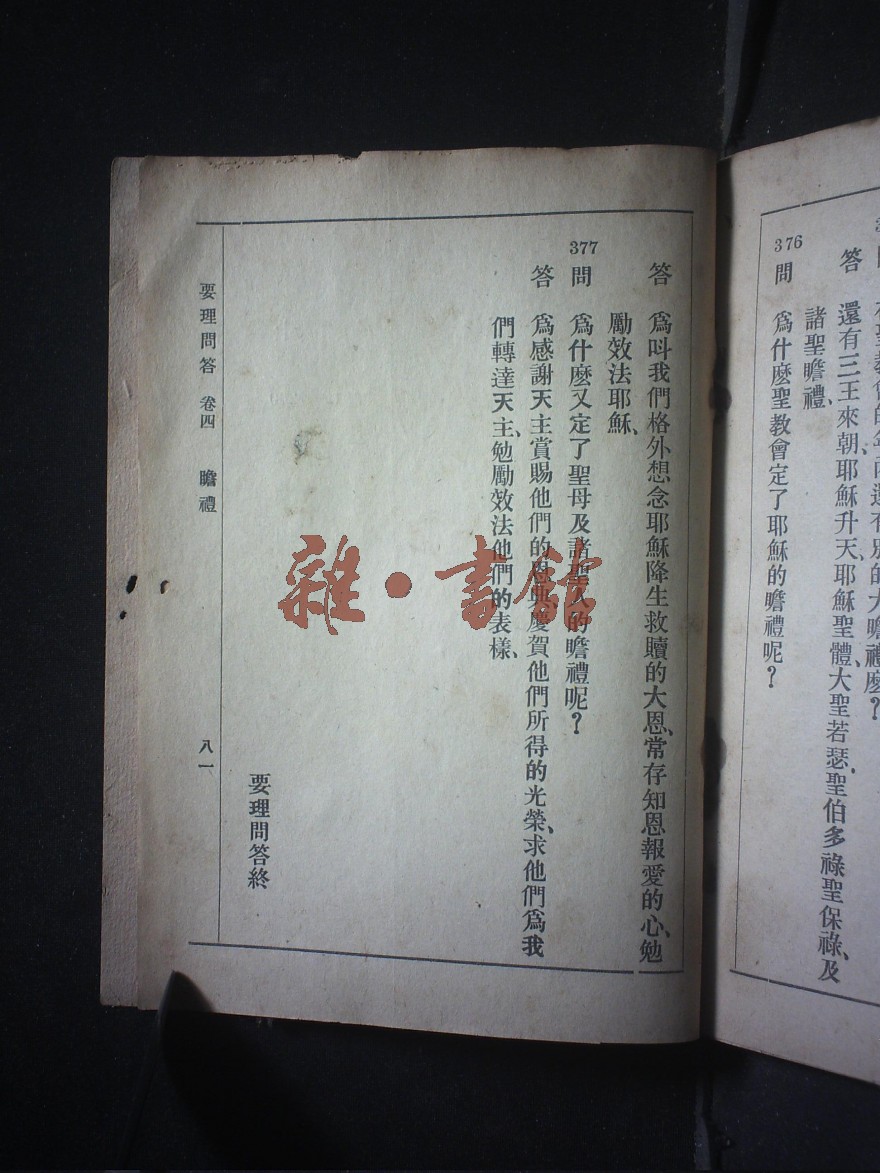 還有三王來朝、耶穌升天、耶穌聖體、大聖若瑟、聖伯多祿聖保祿、及
諸聖瞻禮、
376
問 爲什麽聖教會定了耶穌的瞻禮呢?
答 爲呌我們格外想念耶穌降生救贖的大恩、常存知恩報愛的心、勉
勵效法耶穌、
377
問 爲什麽又定了聖母及諸聖人的瞻禮呢?
答 爲感謝天主賞賜他們的恩典、慶賀他們所得的光榮、求他們爲我
們轉達天主、勉勵效法他們的表樣、
要理問答終
要理問答 卷四 瞻禮 八一
雜·書館